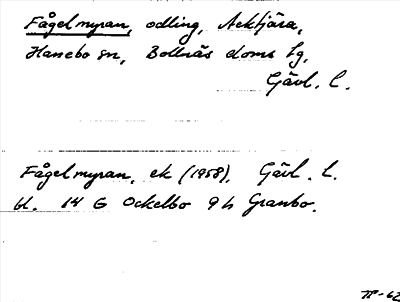 Fågelmyran, odling, Acktjära,
Hanebo sn, Bollnäs doms lg,
Gävl. l.
Fågelmyran, ek (1958), Gävl. l.
bl. 14 G Ockelbo 9 h Granbo.